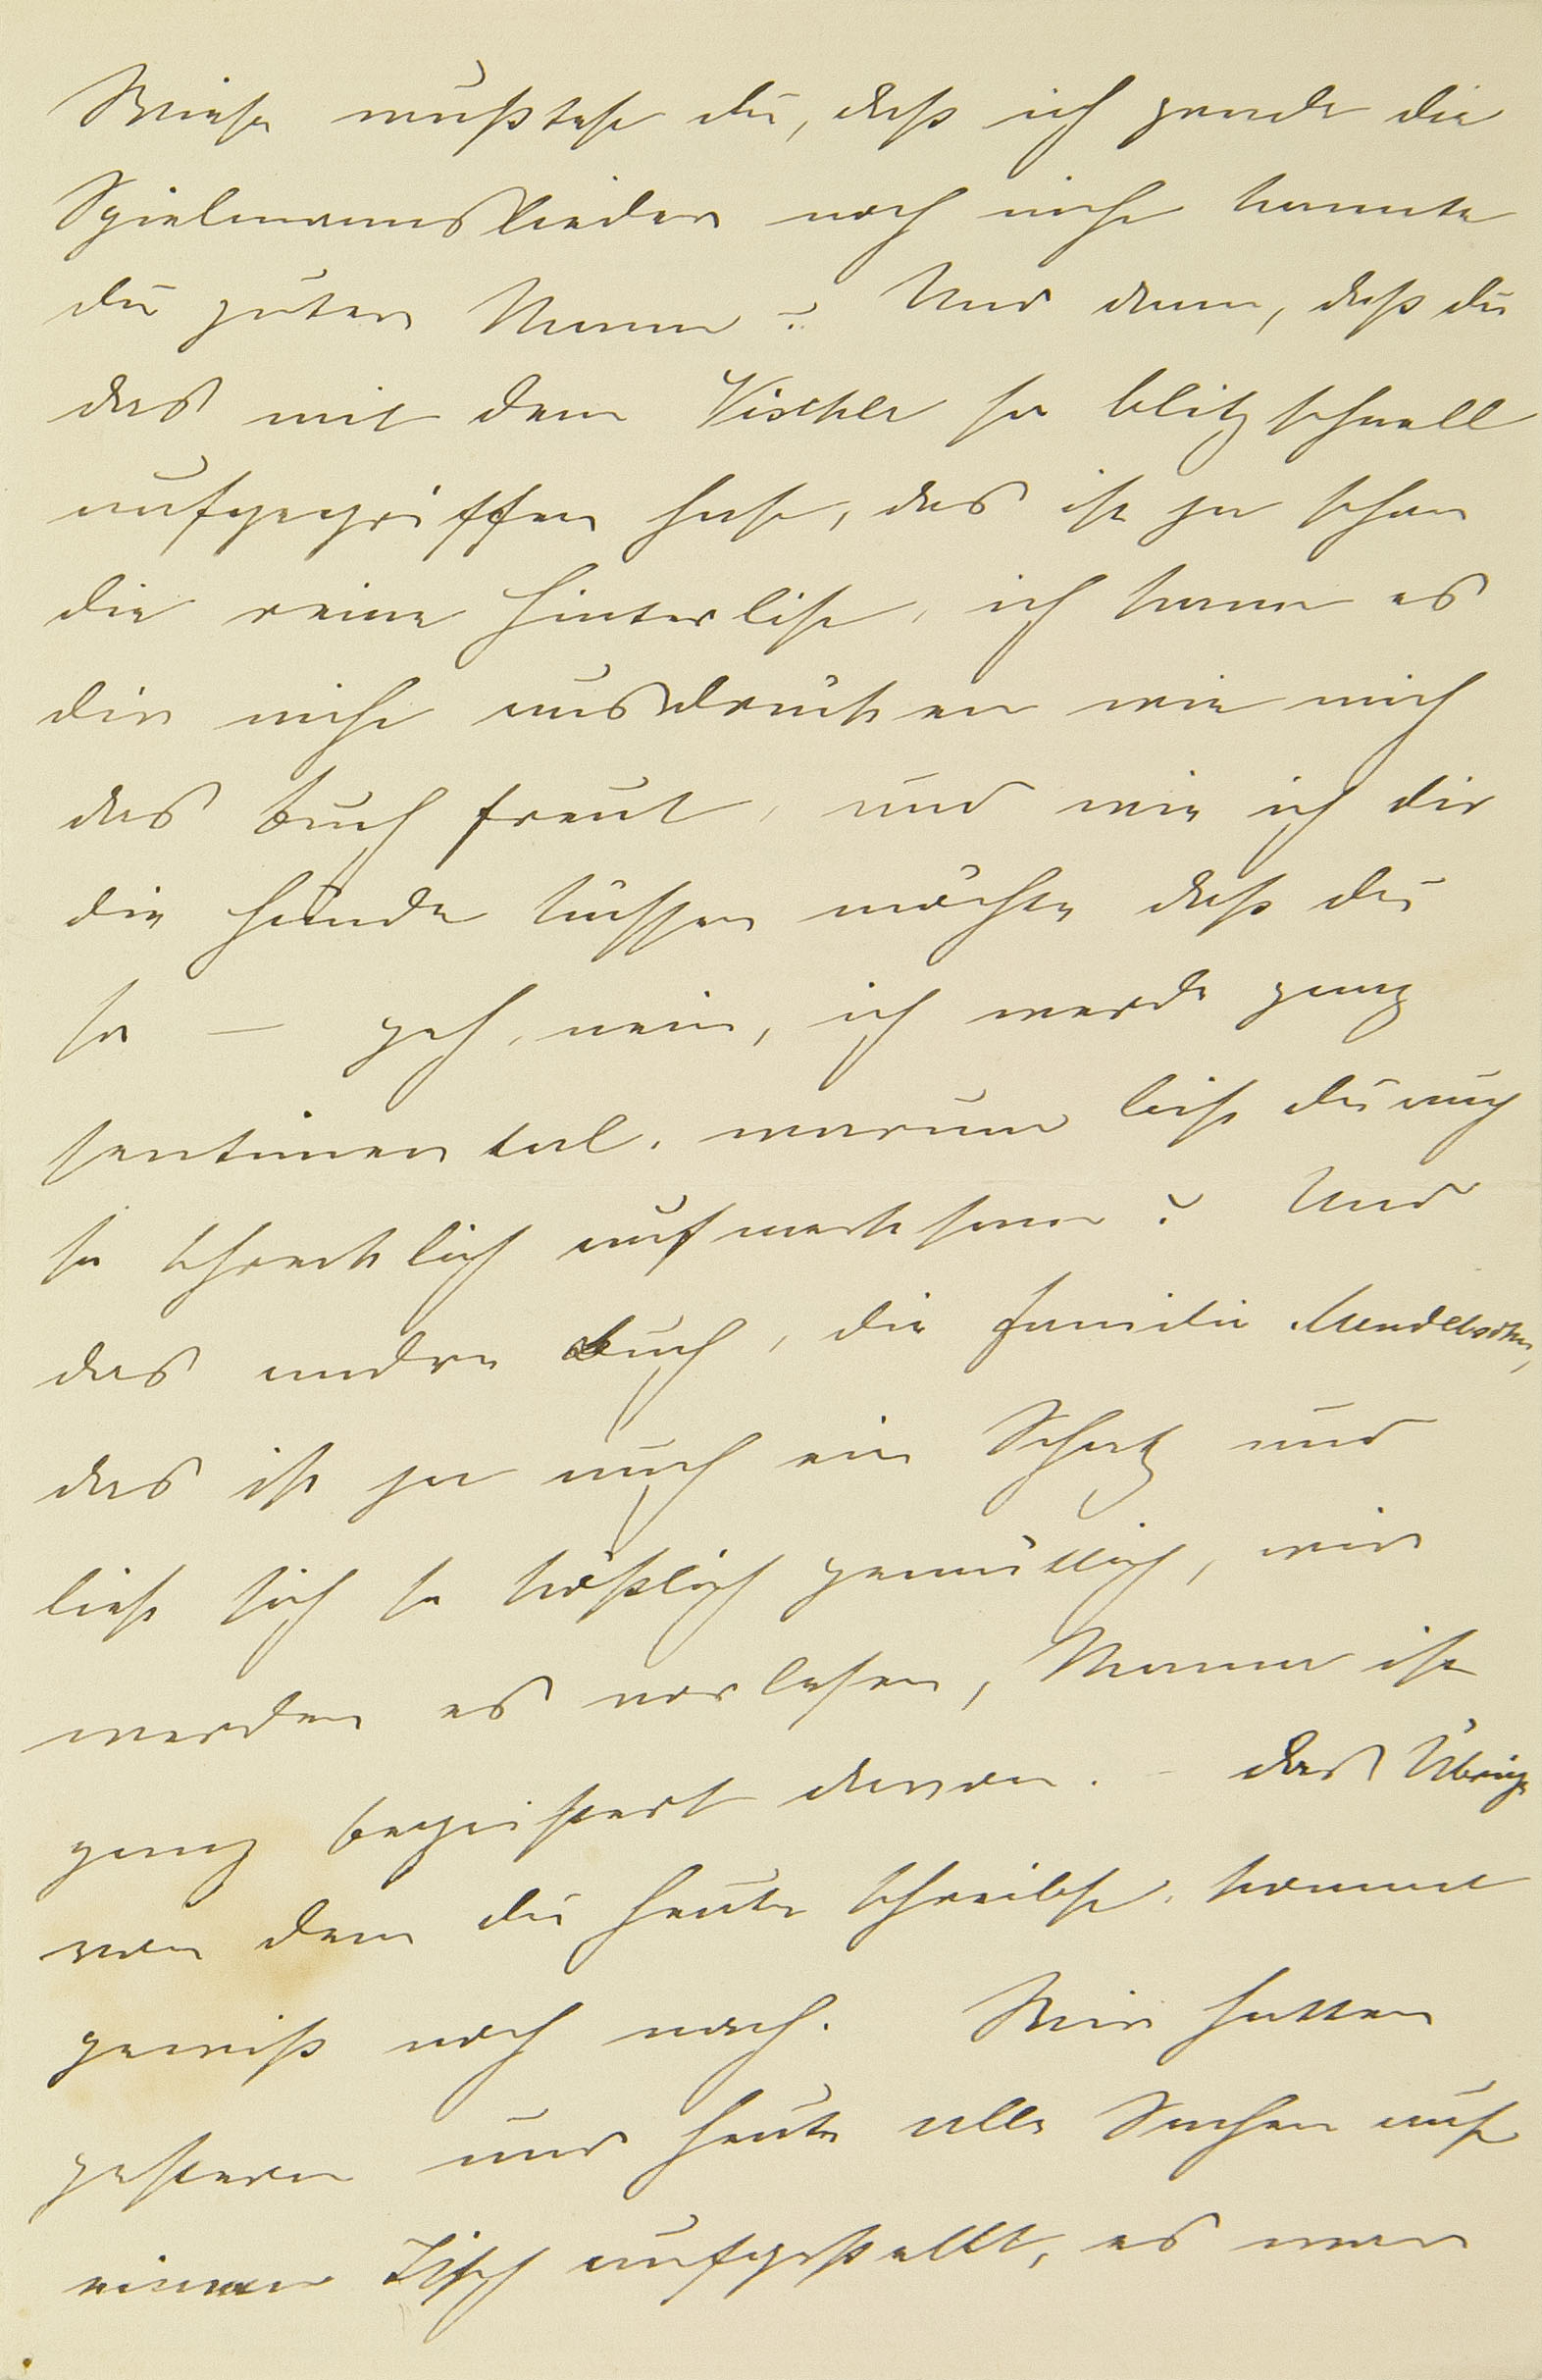 Wieso wußtest du, daß ich gerade die
Spielmannslieder noch nicht kannte
du guter Mann? Und dann, daß du
das mit dem Vischer so blitzschnell
aufgegriffen hast, das ist ja schon
die reine Hinterlist, ich kann es
dir nicht ausdrücken wie mich
das Buch freut, und wie ich dir
die Hände küssen möchte daß du
so — geh, nein, ich werde ganz
sentimental, warum bist du auch
so schrecklich aufmerksam? Und
das andre Buch, die Familie Mendelssohn,
das ist ja auch ein Schatz und
liest sich so köstlich gemütlich, wir
werden es vorlesen, Mama ist
ganz begeistert davon. – das Übrige
von dem du heute schreibst, kommt
gewiß noch nach. Wir hatten
gestern und heute alle Sachen auf
einem Tisch aufgestellt, es war